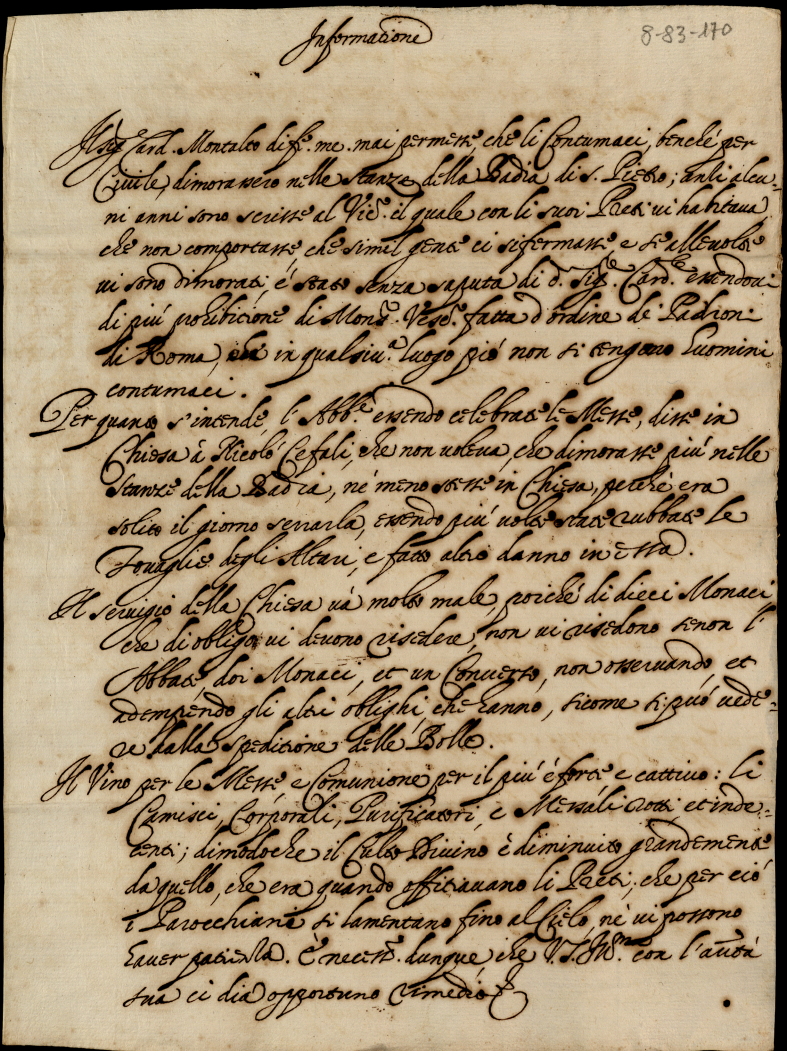 Informatione
8-83-170
Il Sig.r Card. Montalto di fe. me. mai permesse, che li Contumaci, benché per
Civile, dimorassero nelle stanze della Badia di S. Pietro; anzi alcu-
ni anni sono scrisse al Vic.o il quale con li suoi Preti vi habitava,
che non comportasse, che simil gente ci si fermasse e se alle volte
vi sono dimorati, é stato senza saputa di d.o Sig.r Card.le essendovi
di piú prohibitione di Mons.r Vesc.o fatta d'ordine de' Padroni
di Roma, che in qualsiv.a luogo pió non si tengano huomini
contumaci.
Per quanto s'intende, l'Abb.e essendo celebrate le Messe, disse in
Chiesa à Nicoló Cefali, che non voleva, che dimorasse piú nelle
stanze della Badia, né meno stesse in Chiesa, perché era
solito il giorno serrarla, essendo piú volte state rubbate le
Tovaglie degli Altari, e fatto altro danno in essa.
Il servigio della Chiesa vá molto male, poiché di dieci Monaci
che di obligo vi devono risedere, non vi risedono senon l'
Abbate, doi Monaci, et un Converso, non osservando, et
adempiendo gli altri oblighi, che hanno, sicome si puó vede-
re dalla speditione delle Bolle.
Il Vino per le Messe e Comunione per il piú é forte e cattivo: li
Camisci, Corporali, Purificatori, e Messali rotti, et inde-
centi; dimodoche il Culto Divino é diminuito grandemente
da quello, che era quando offitiavano li Preti, che per ció
i Parocchiani si lamentano fino al Cielo, né vi possono
haver patienza. É necess.o dunque, che V.S. Ill.ma con l'autt.á
sua ci dia opportuno rimedio.